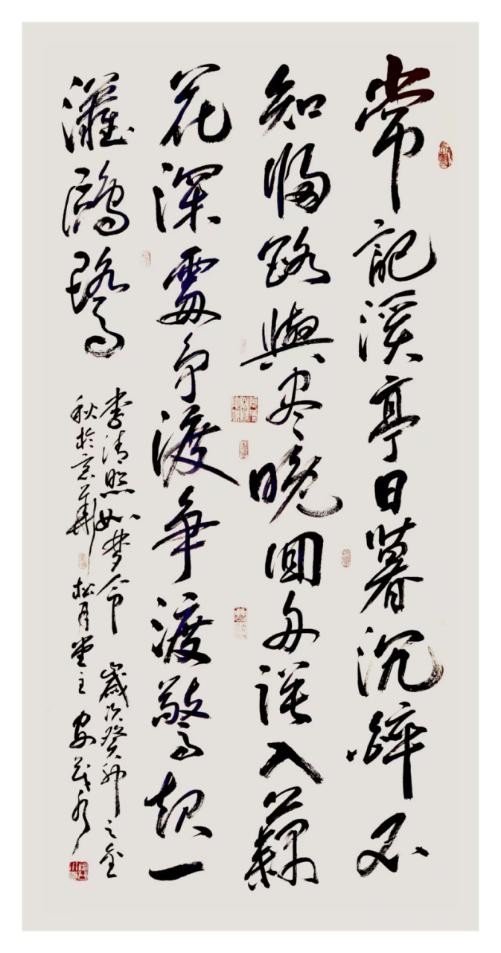 常記溪亭日暮沉醉不
知歸路興尽晚回舟誤入藕
花深處争渡爭渡驚起一
灘鷗鷺
李清照如梦令 歲次癸卯之金
秋於京華 松月堂主